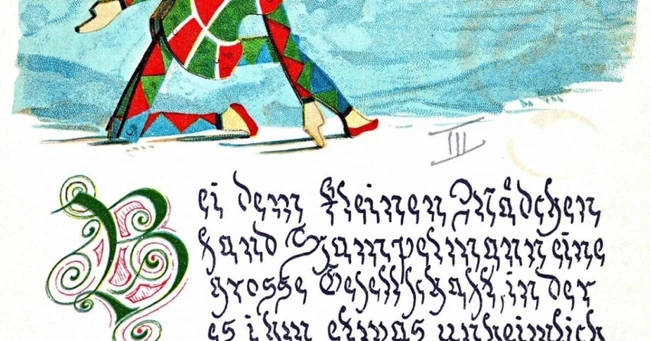 III
Bei dem kleinen Mädchen
fand Hampelmann eine
grosse Gesellschaft, in der
es ihm etwas unheimlich